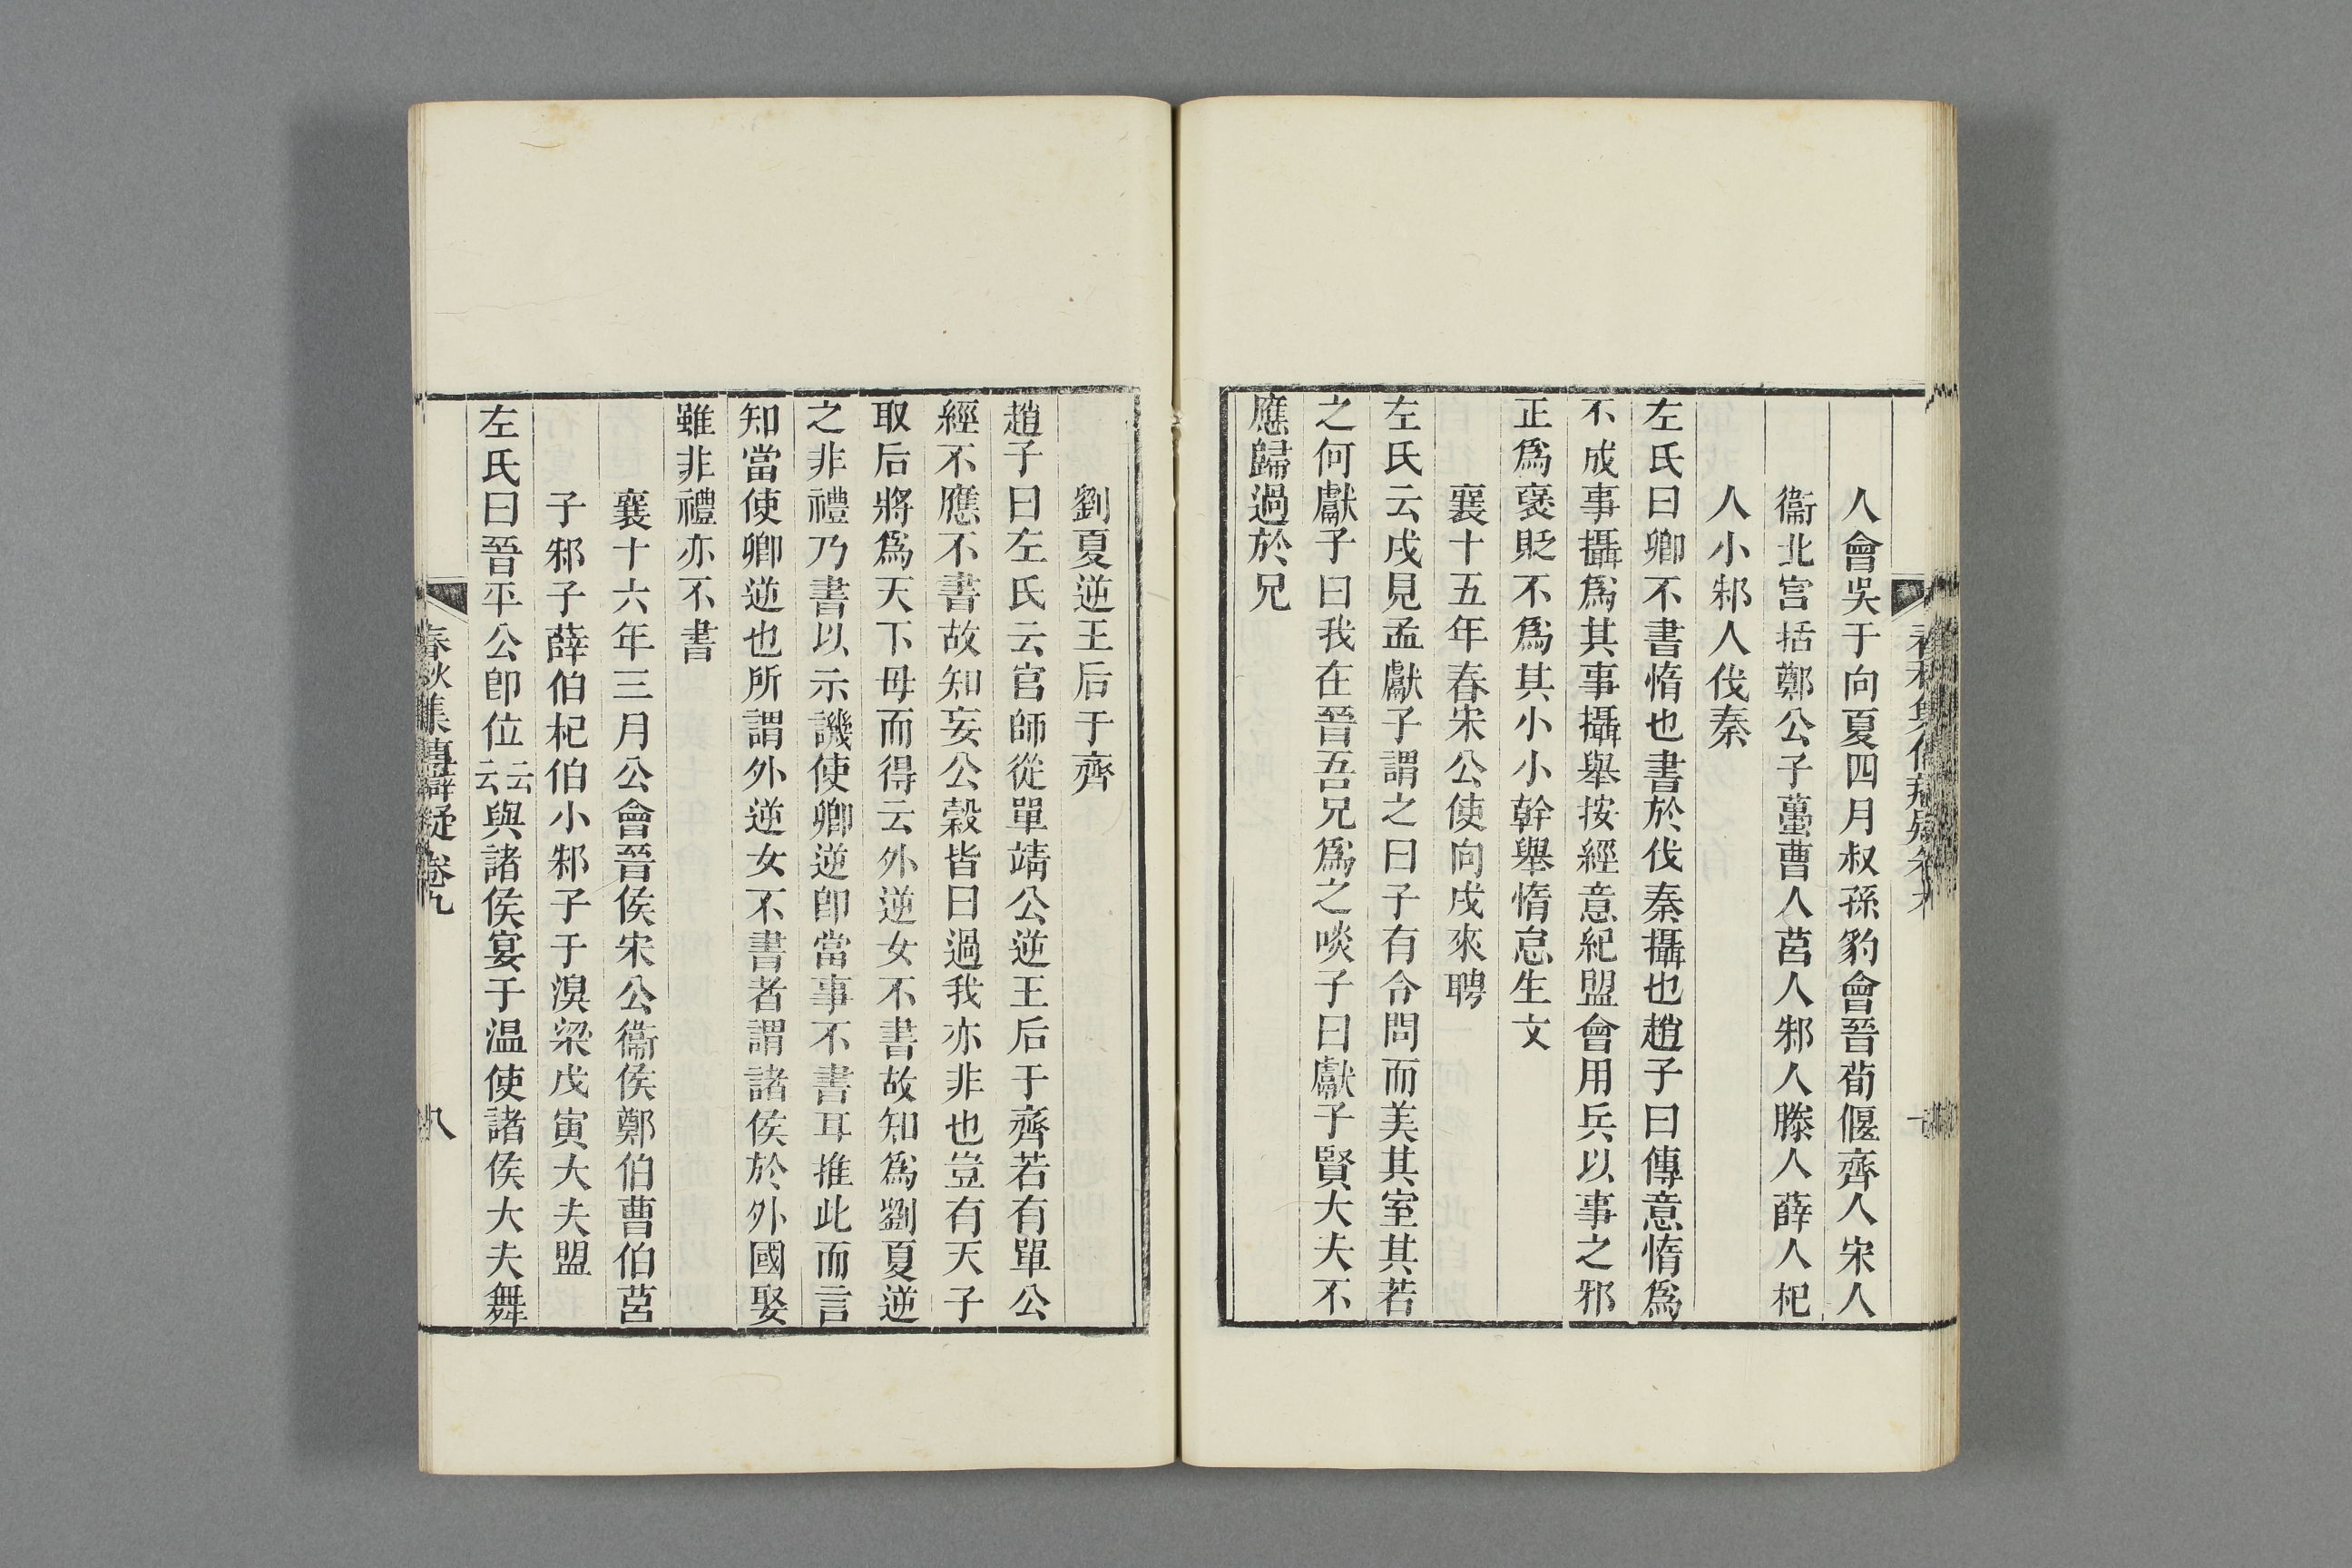 人會吳于向夏四月叔孫豹會晉荀偃齊人宋人
衞北宮括鄭公子蠆曹人莒人邾人滕人薛人杞
人小邾人伐秦
左氏曰卿不書惰也書於伐秦攝也趙子曰傳意惰爲
不成事攝爲其事攝舉按經意紀盟會用兵以事之邪
正爲襃貶不爲其小小幹舉惰怠生文
襄十五年春宋公使向戌來聘
左氏云戌見孟獻子謂之曰子有令問而美其室其若
之何獻子曰我在晉吾兄爲之啖子曰獻子賢大夫不
應歸過於兄
劉夏逆王后于齊
趙子曰左氏云官師從單靖公逆王后于齊若有單公
經不應不書故知妄公穀皆曰過我亦非也豈有天子
取后將爲天下母而得云外逆女不書故知爲劉夏逆
之非禮乃書以示譏使卿逆卽當事不書耳推此而言
知當使卿逆也所謂外逆女不書者謂諸侯於外國娶
雖非禮亦不書
襄十六年三月公會晉侯宋公衞侯鄭伯曹伯莒
子邾子薛伯杞伯小邾子于湨梁戊寅大夫盟
左氏曰晉平公卽位云云與諸侯宴于温使諸侯大夫舞
春秋集傳辯疑卷九
八